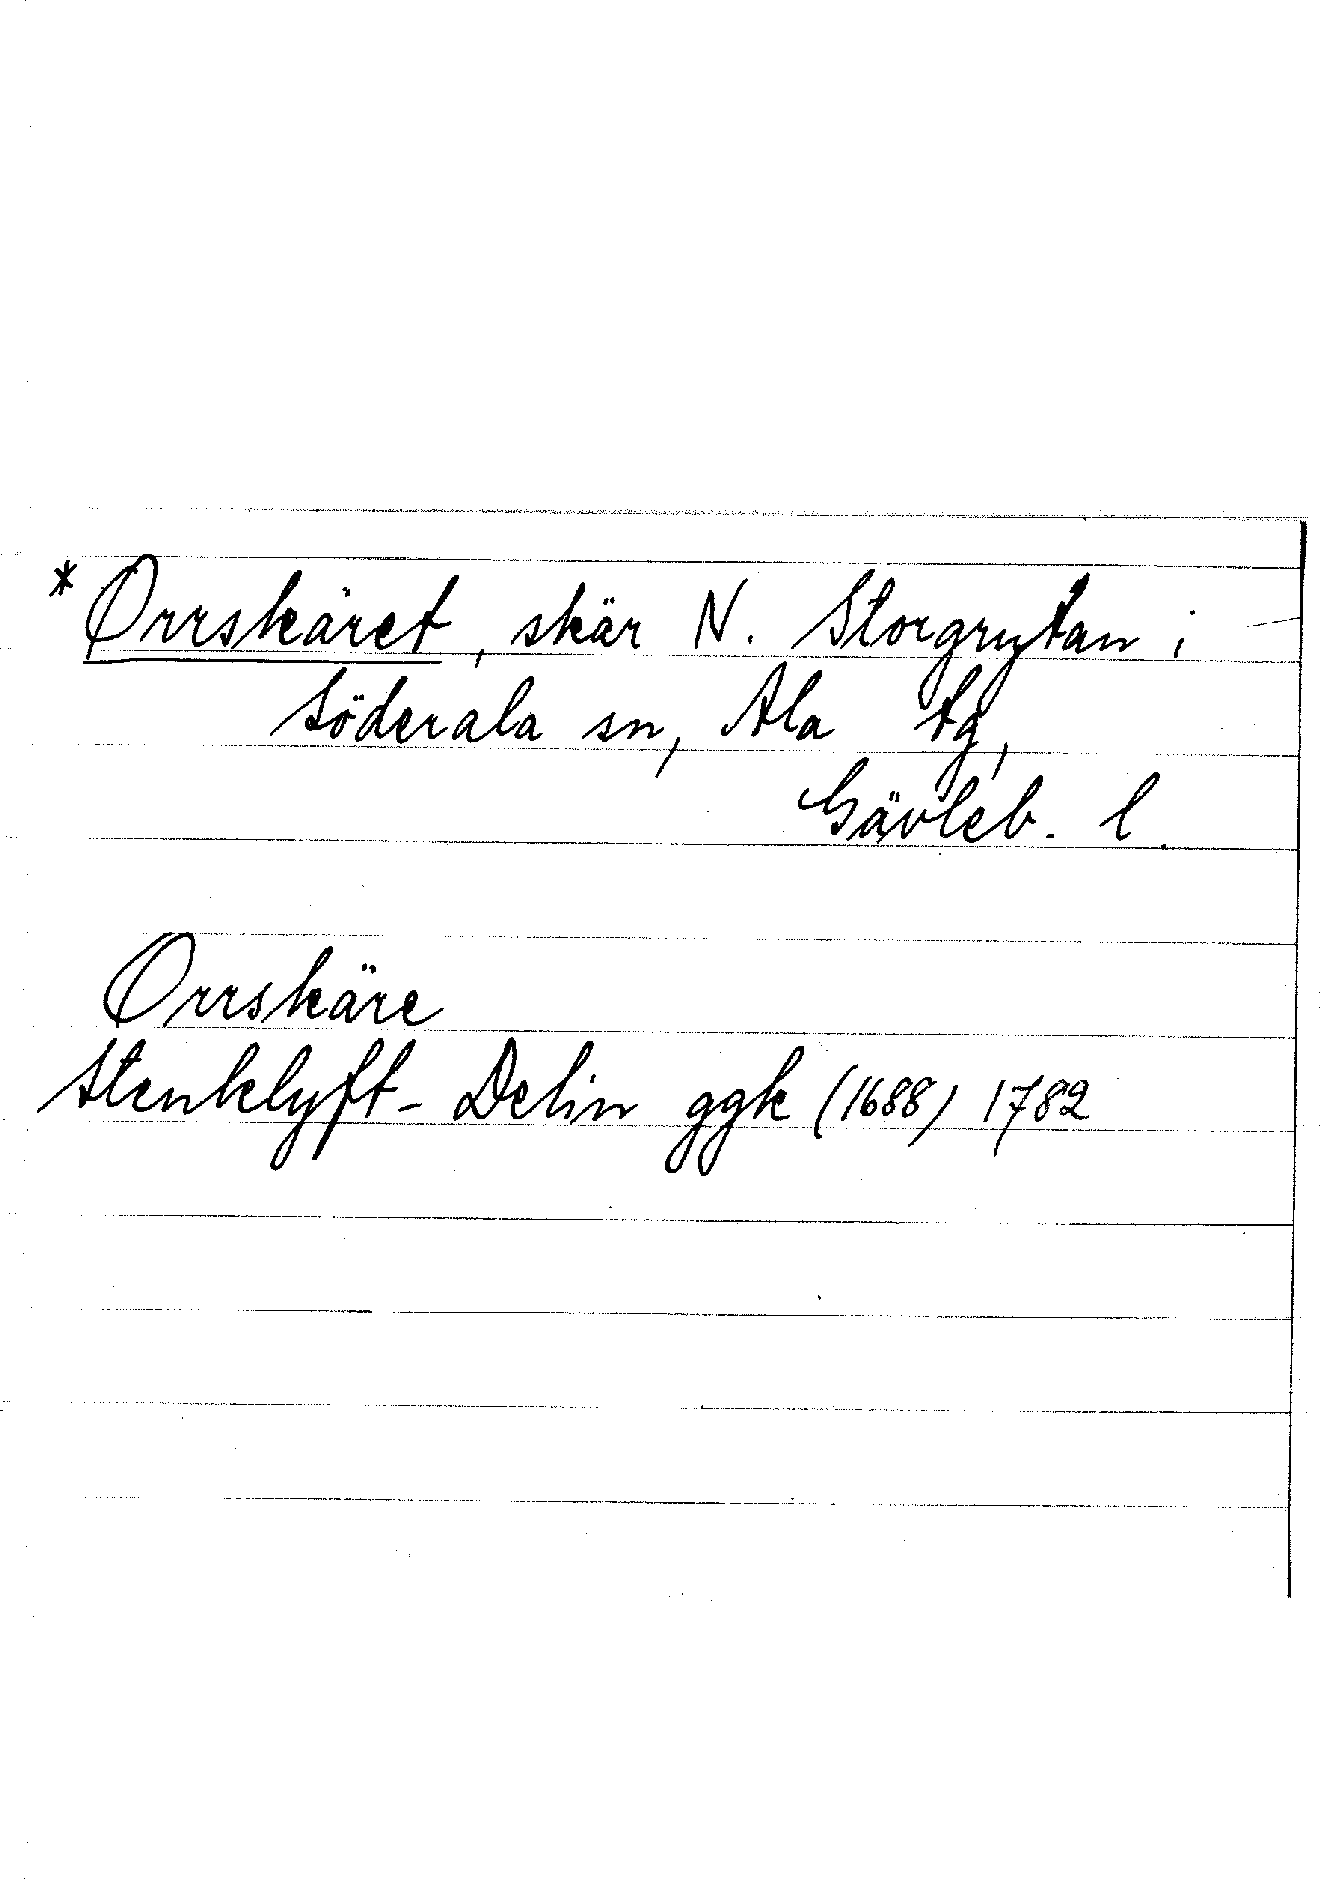 * Orrskäret, skär N. Storgrytan i
Söderala sn, Ala tg,
Gävleb. l.
Orrskäre
Stenklyft - Delin ggk (1688) 1782